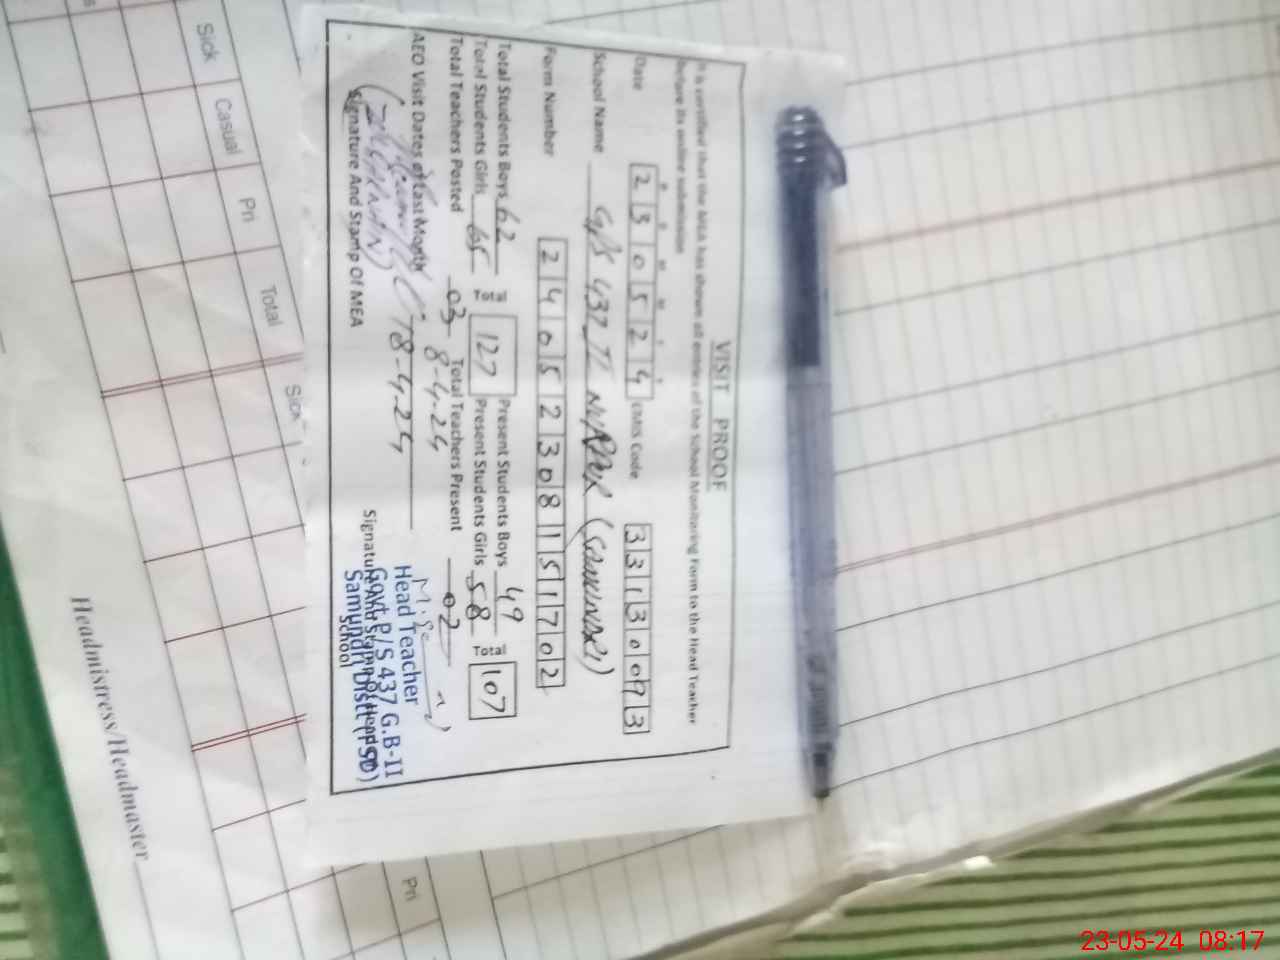 VISIT PROOF
It is certified that the MEA has shown all entries of the School Monitoring Form to the Head Teacher
before its online submission
Date 2 3 0 5 2 4 EMIS Code 3 3 1 3 0 0 9 3
School Name G/S 437
Form Number 2 4 0 5 2 3 0 8 1 5 1 7 0 2
Total Students Boys 62 Present Students Boys 49
Total 127 Total 107
Total Students Girls 65 Present Students Girls 58
Total Teachers Posted 03 Total Teachers Present 02
AEO Visit Dates of Last Month 8-4-24
18-4-24
Signature And Stamp Of MEA
Head Teacher
Govt P/S 437 G.B-II
Samundri Distt (FSD)
Signature And Stamp Of Head
School
Sick Casual Pri Total Sick
Pri
Headmistress/Headmaster
23-05-24 08:17